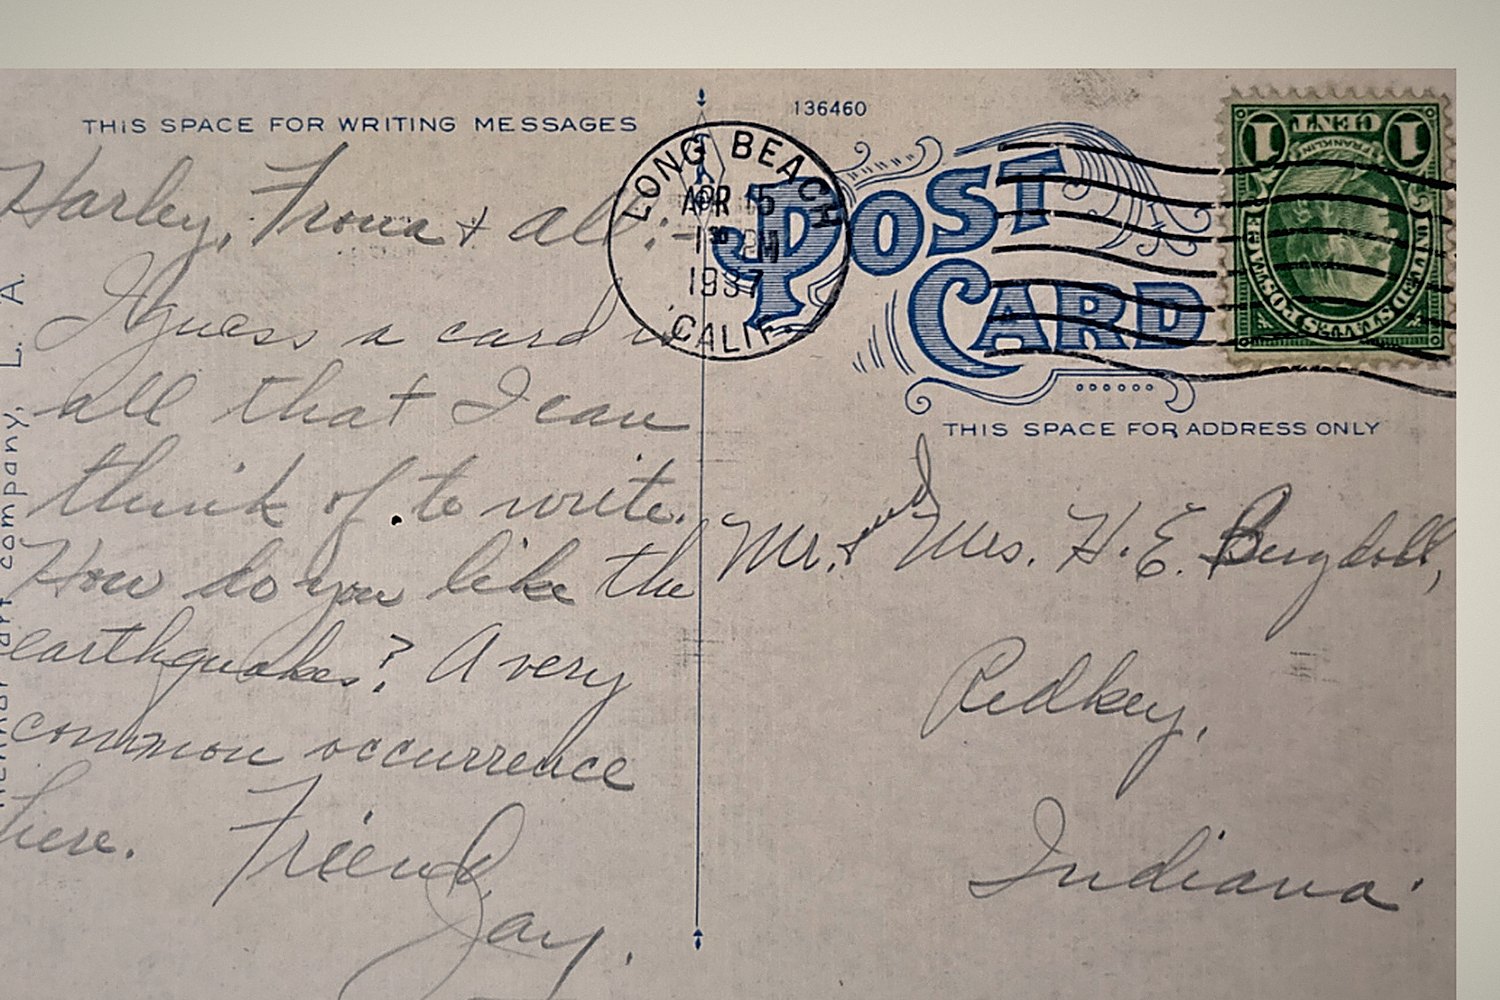 THIS SPACE FOR WRITING MESSAGES
Harley, Trova & all:-
I guess a card is
all that I can
think of to write.
How do you like the
earthquakes? A very
common occurrence
here. Friend,
Jay.
art company, L. A.
136460
LONG BEACH
APR 5
1 30 PM
1937
CALIF.
POST
CARD
1 CENT 1
FRANKLIN
UNITED STATES POSTAGE
THIS SPACE FOR ADDRESS ONLY
Mr. & Mrs. H. E. Bergdoll,
Redkey,
Indiana.